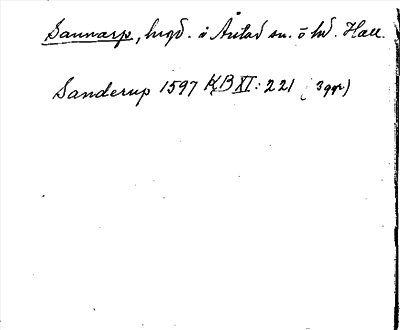 Sannarp, hrgd. i Årstad sn. o hd. Hall.
Sanderup 1597 KB XI: 221 (3 ggr)